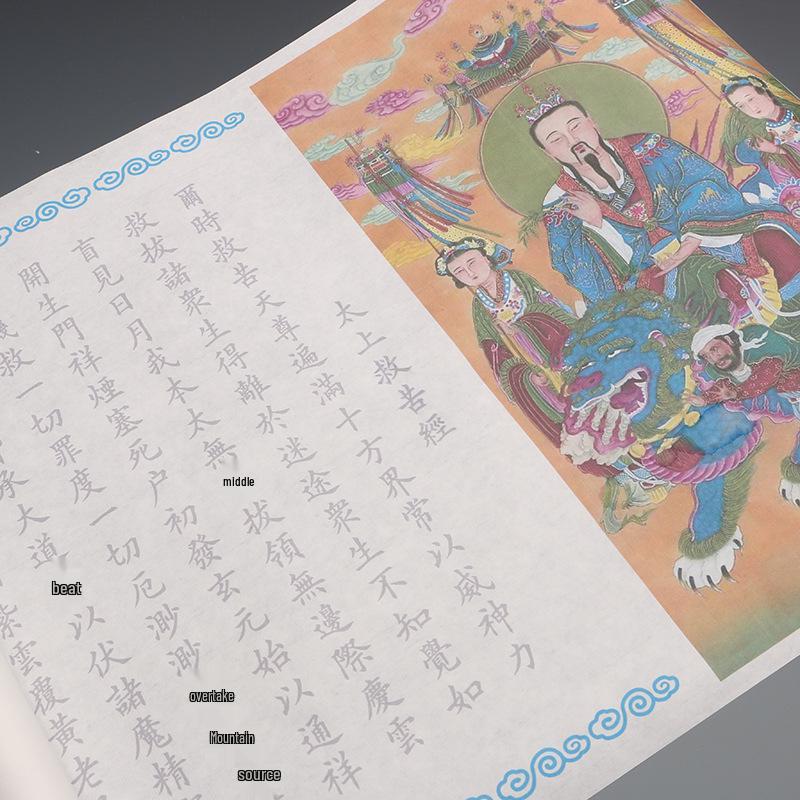 太上救苦經
爾時救苦天尊遍滿十方界常以威神力
救拔諸眾生得離於迷途眾生不知覺如
盲見日月我本太無
middle
拔領無邊際慶雲
開生門祥煙塞死户初發玄元始以通祥
救一切罪度一切厄渺渺
overtake
Mountain
source
承大道
beat
以伏諸魔精
紫雲覆黃老